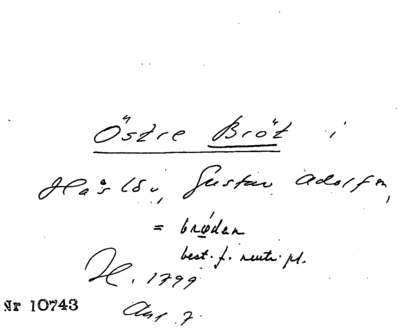 "Östre Bröt" i
Håslöv, Gustav Adolf m,
= brøden
best. f. neutr. pl.
H. 1799
Nr 10743